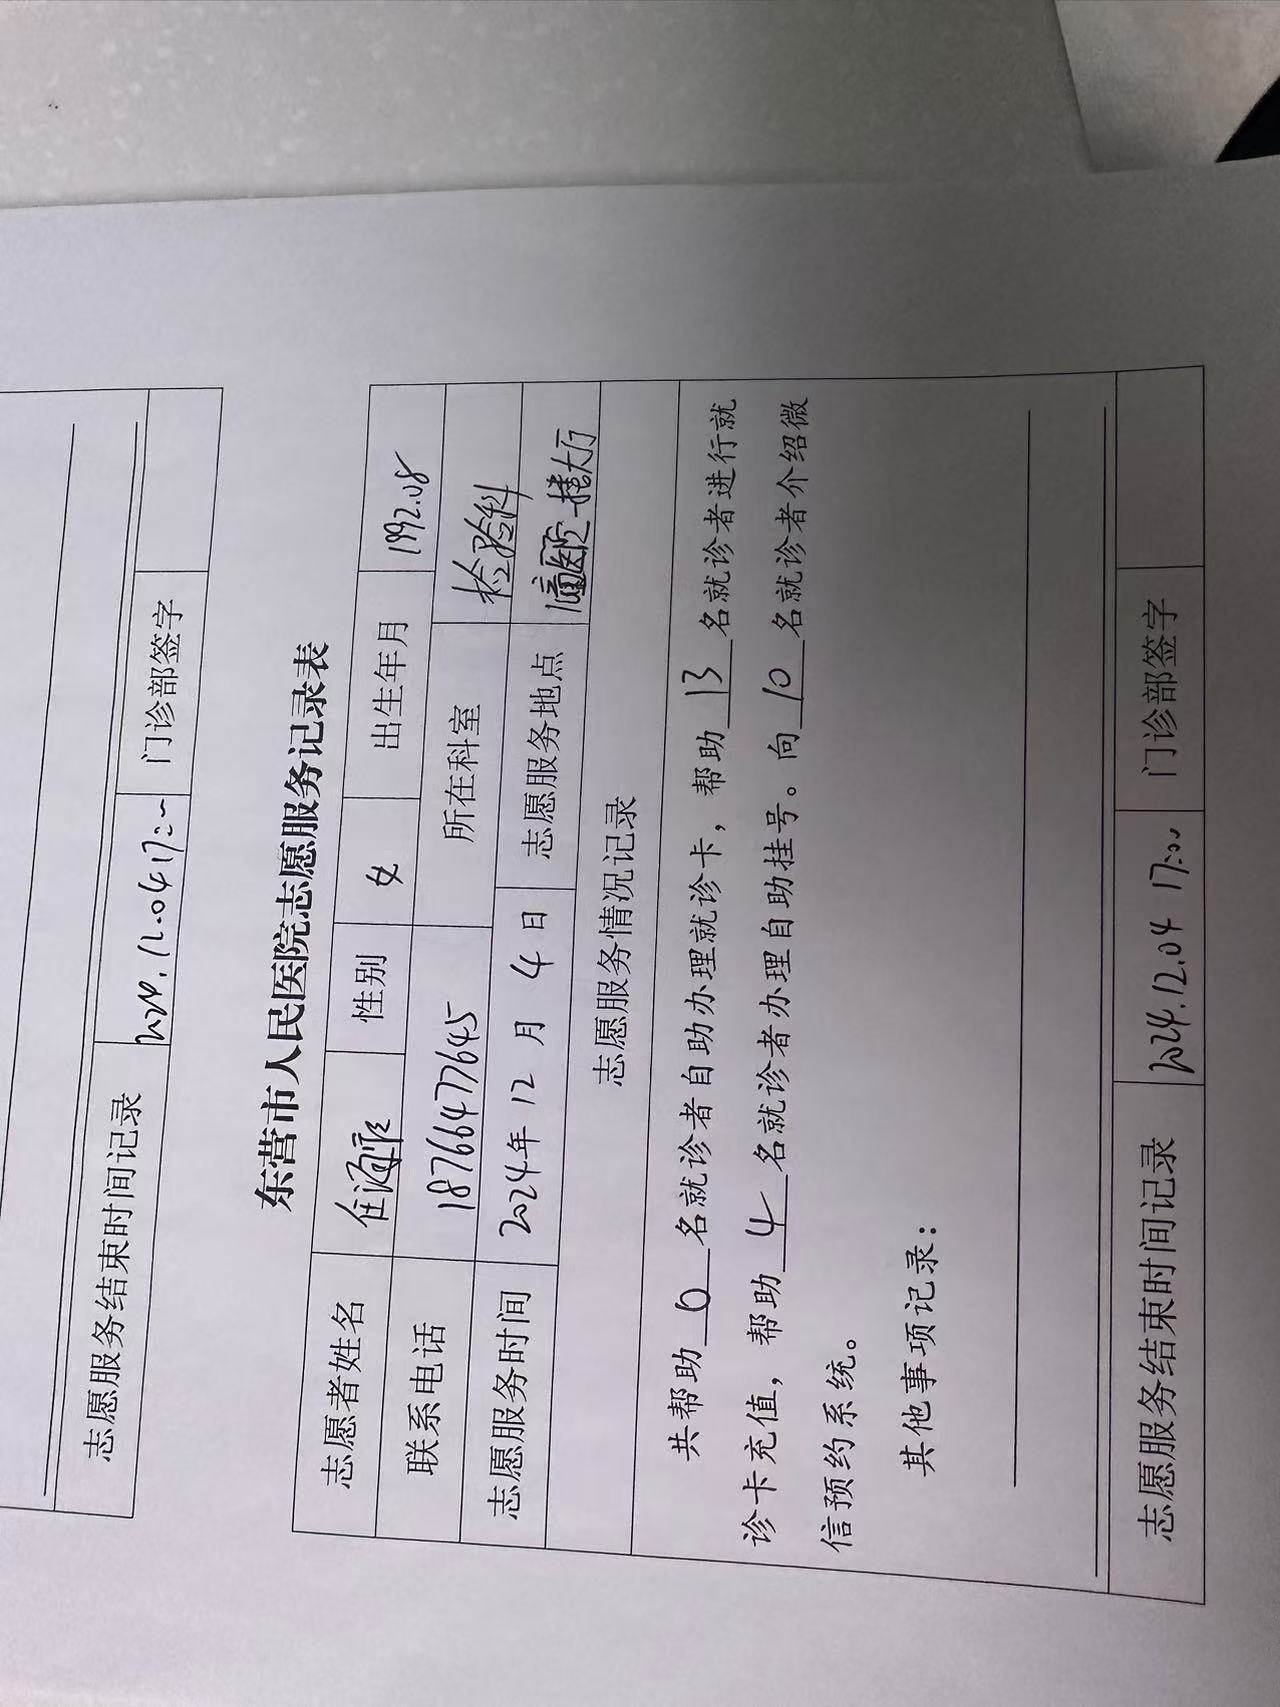 志愿服务结束时间记录 2024.12.04 17:00 门诊部签字
东营市人民医院志愿服务记录表
志愿者姓名 任 性别 女 出生年月 1992.08
联系电话 18766477645 所在科室 检验科
志愿服务时间 2024年12月4日 志愿服务地点 一楼大厅
志愿服务情况记录
共帮助 6 名就诊者自助办理就诊卡，帮助 13 名就诊者进行就
诊卡充值，帮助 4 名就诊者办理自助挂号。向 10 名就诊者介绍微
信预约系统。
其他事项记录：
志愿服务结束时间记录 2024.12.04 17:00 门诊部签字